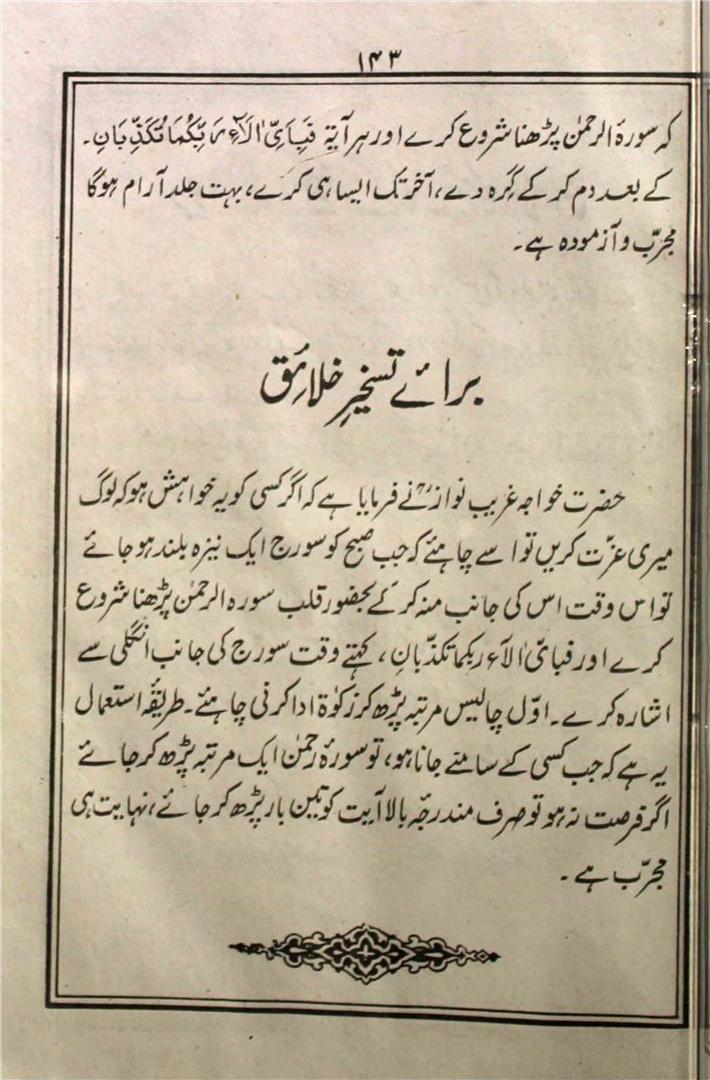 ۱۴۳
کہ سورۂ الرحمٰن پڑھنا شروع کرے اور ہر آیۃ فَبِاَیِّ اٰلَآءِ رَبِّکُمَا تُکَذِّبَانِ۔
کے بعد دم کر کے گرہ دے، آخر تک ایسا ہی کرے، بہت جلد آرام ہوگا
مجرّب و آزمودہ ہے۔
برائے تسخیرِ خلائق
حضرت خواجہ غریب نوازؒ نے فرمایا ہے کہ اگر کسی کو یہ خواہش ہو کہ لوگ
میری عزّت کریں تو اسے چاہئے کہ جب صبح کو سورج ایک نیزہ بلند ہو جائے
تو اس وقت اس کی جانب منہ کر کے بحضورِ قلب سورہ الرحمٰن پڑھنا شروع
کرے اور فبایّ اٰلآء ربکما تکذّبانِ، کہتے وقت سورج کی جانب انگلی سے
اشارہ کرے۔ اوّل چالیس مرتبہ پڑھ کر زکوٰۃ ادا کرنی چاہئے۔ طریقۂ استعمال
یہ ہے کہ جب کسی کے سامنے جانا ہو، تو سورۂ رحمٰن ایک مرتبہ پڑھ کر جائے
اگر فرصت نہ ہو تو صرف مندرجۂ بالا آیت کو تین بار پڑھ کر جائے، نہایت ہی
مجرّب ہے۔